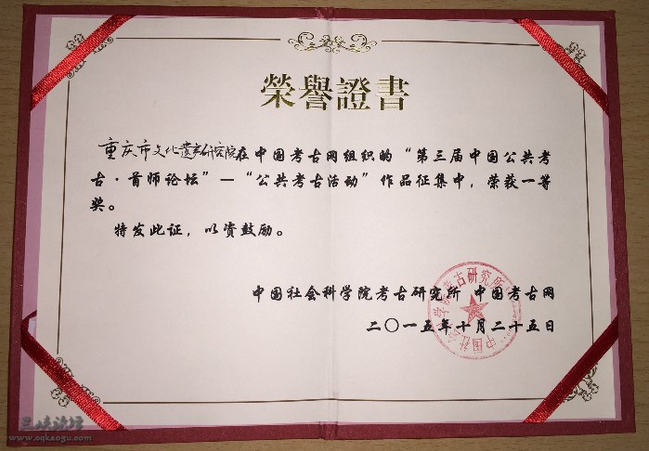 榮譽證書
重庆市文化遗产研究院在中国考古网组织的“第三届中国公共考
古·首师论坛”—“公共考古活动”作品征集中，荣获一等
奖。
特发此证，以资鼓励。
中国社会科学院考古研究所 中国考古网
二〇一五年十月二十五日
中国社会科学院考古研究所
www.cqkaogu.com